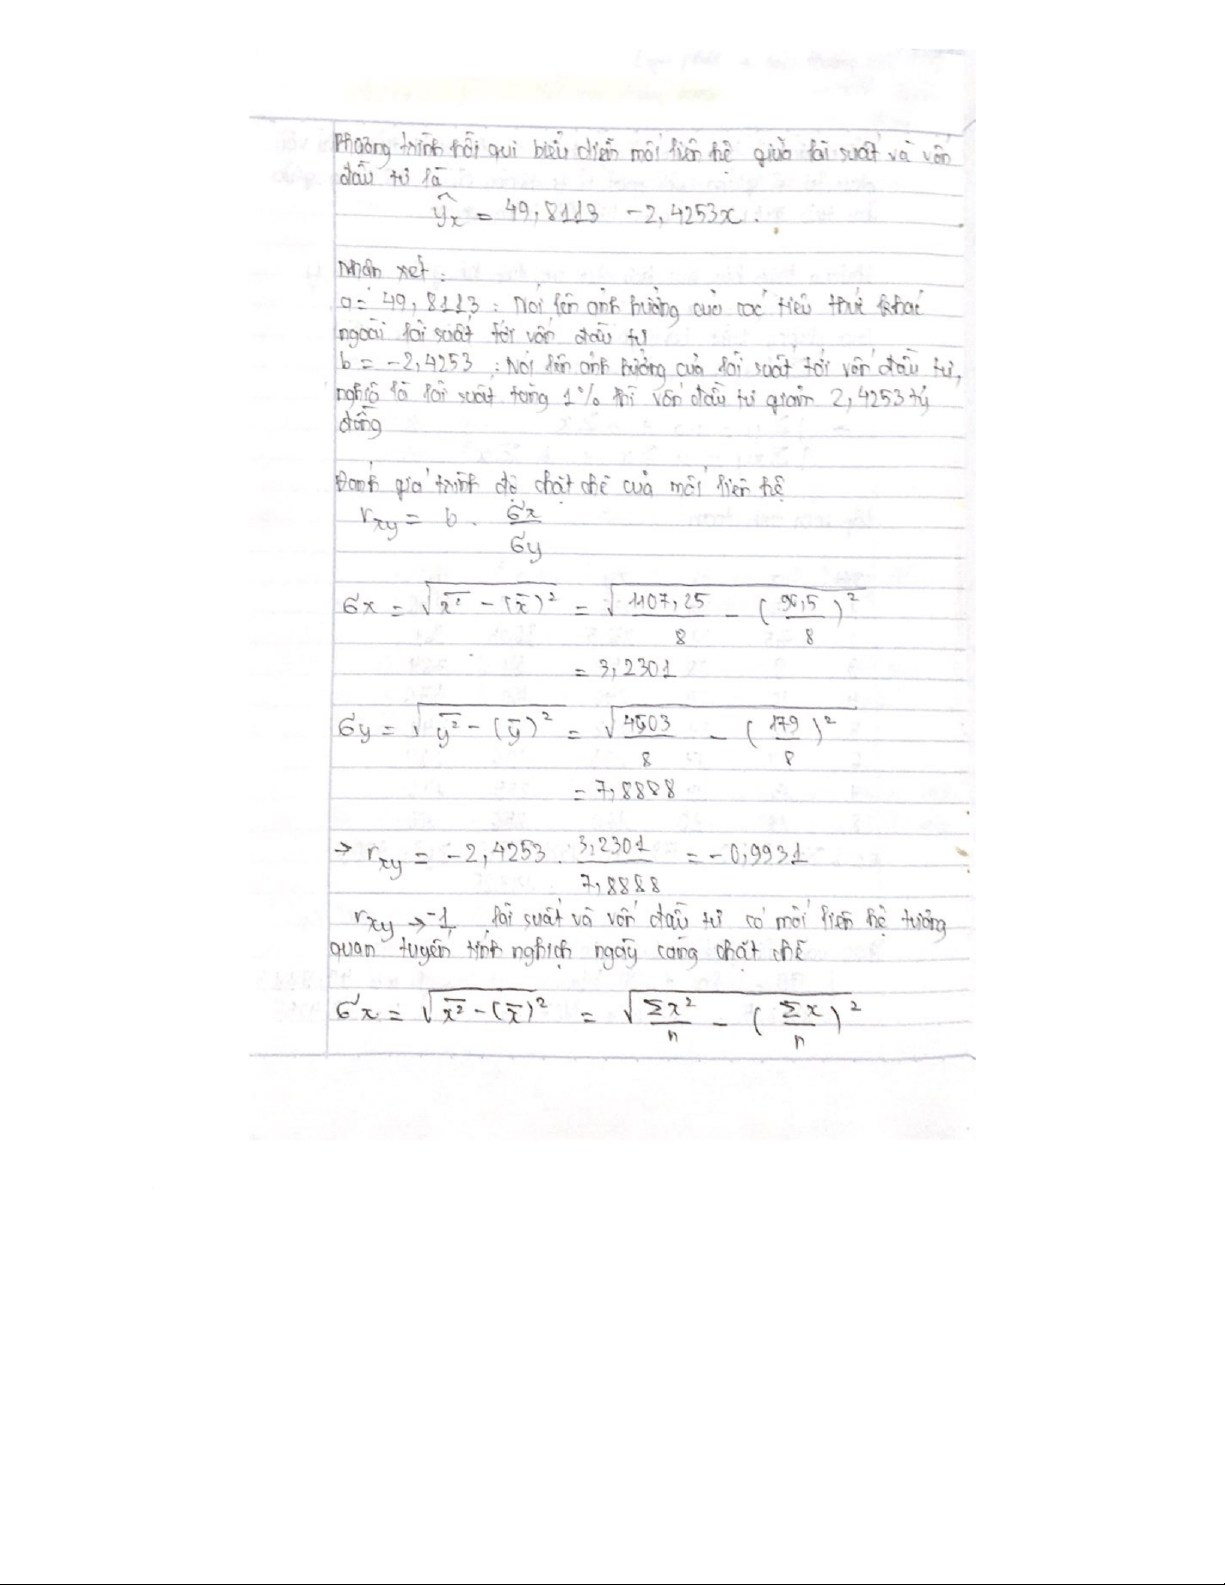 Phương trình hồi qui biểu diễn mối liên hệ giữa lãi suất và vốn
đầu tư là
ŷx = 49,8113 - 2,4253x.
Nhận xét:
a = 49,8113: Nói lên ảnh hưởng của các tiêu thức khác
ngoài lãi suất tới vốn đầu tư
b = -2,4253: Nói lên ảnh hưởng của lãi suất tới vốn đầu tư,
nghĩa là lãi suất tăng 1% thì vốn đầu tư giảm 2,4253 tỷ
đồng
Đánh giá trình độ chặt chẽ của mối liên hệ
rxy = b . σx/σy
σx = √(x̄² - (x̄)²) = √(1107,25/8 - (96,5/8)²)
= 3,2301
σy = √(ȳ² - (ȳ)²) = √(4503/8 - (179/8)²)
= 7,8888
→ rxy = -2,4253 . 3,2301/7,8888 = -0,9931
rxy → -1 lãi suất và vốn đầu tư có mối liên hệ tương
quan tuyến tính nghịch ngày càng chặt chẽ
σx = √(x̄² - (x̄)²) = √(Σx²/n - (Σx/n)²)